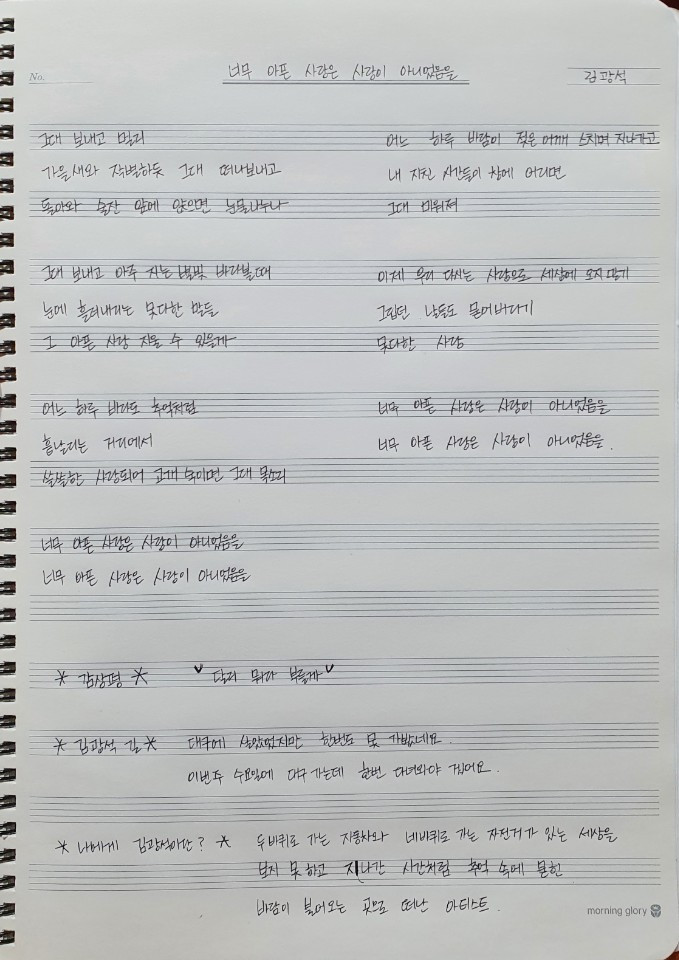 No.
너무 아픈 사랑은 사랑이 아니었음을
김광석
그대 보내고 멀리
가을새와 작별하듯 그대 떠나보내고
돌아와 술잔 앞에 앉으면 눈물나누나
그대 보내고 아주 지는 별빛 바라볼때
눈에 흘러내리는 못다한 말들
그 아픈 사랑 지울 수 있을까
어느 하루 비라도 추억처럼
흩날리는 거리에서
쓸쓸한 사람되어 고개 숙이면 그대 목소리
너무 아픈 사랑은 사랑이 아니었음을
너무 아픈 사랑은 사랑이 아니었음을
어느 하루 바람이 젖은 어깨 스치며 지나가고
내 지친 시간들이 창에 어리면
그대 미워져
이제 우리 다시는 사랑으로 세상에 오지 말기
그립던 날들도 묻어버리기
못다한 사랑
너무 아픈 사랑은 사랑이 아니었음을
너무 아픈 사랑은 사랑이 아니었음을.
* 감상평 * "달리 뭐라 부를까"
* 김광석 길 * 대구에 살았었지만 한번도 못 가봤네요.
이번주 수요일에 대구 가는데 한번 다녀와야 겠어요.
* 나에게 김광석이란? * 두바퀴로 가는 자동차와 네바퀴로 가는 자전거가 있는 세상을
보지 못 하고 지나간 시간처럼 추억 속에 묻힌
바람이 불어오는 곳으로 떠난 아티스트.
morning glory